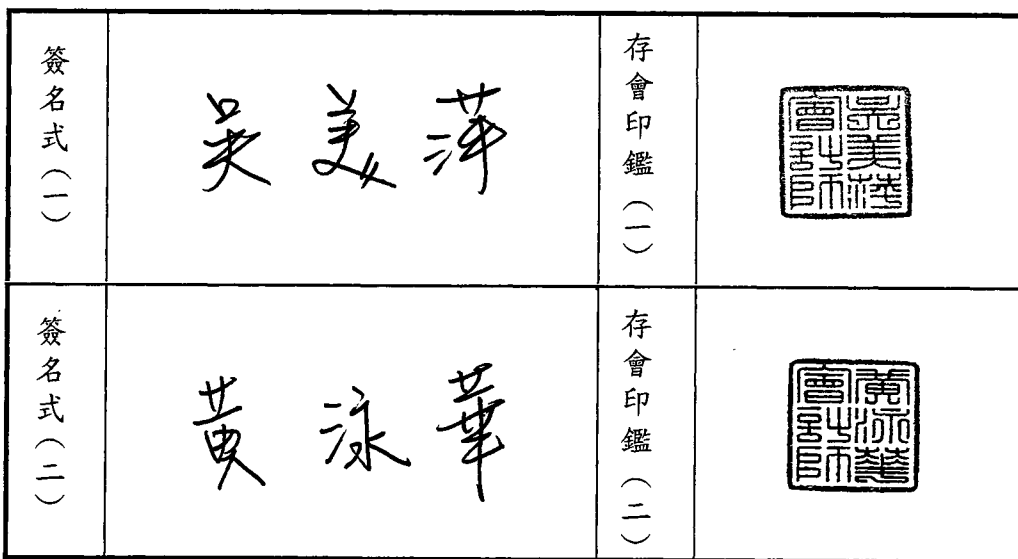 簽名式（一）
吳美萍
存會印鑑（一）
吳美萍會計師
簽名式（二）
黃泳華
存會印鑑（二）
黃泳華會計師